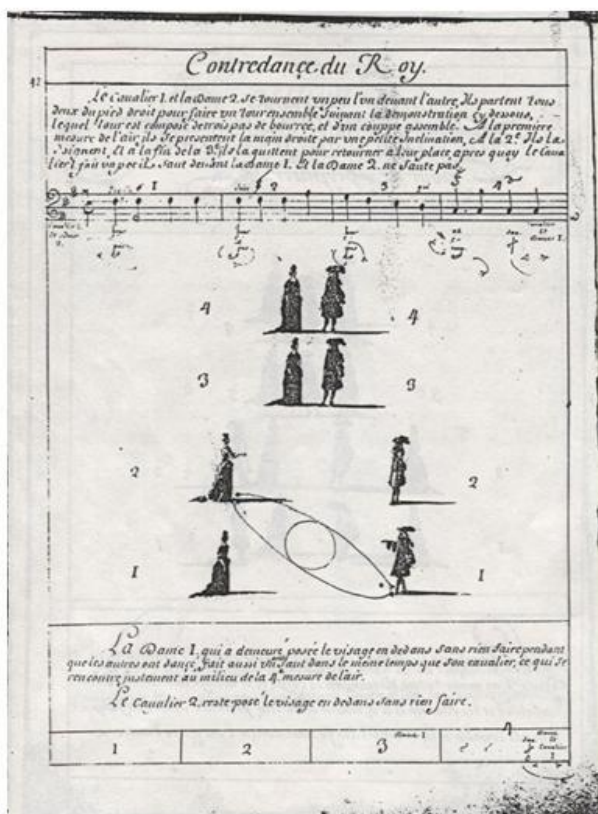 Contredance du Roy.
Le Cavalier 1. et la Dame 2. se tournent un peu l'un devant l'autre, Ils partent tous
deux du pied droit pour faire un tour ensemble suivant la demonstration cy dessous,
lequel tour est composé de trois pas de bourrée, et d'un coupé assemble. A la premiere
mesure de l'air, ils se presentent la main droite par une petite Inclination, A la 2.e Ils la
Joignent, Et à la fin de la 3.e ils la quittent pour retourner a leur place, apres quoy le Cava
lier 1. fait un petit saut devant la Dame 1. Et la Dame 2. ne saute pas.
1 2 3 4
4 4
3 3
2 2
1 1
La Dame 1. qui a demeuré posée le visage en dedans sans rien faire pendant
que les autres ont dancé, fait aussi un petit saut dans le meme temps que son cavalier, ce qui se
rencontre justement au milieu de la 4.e mesure de l'air.
Le Cavalier 2. reste posé le visage en dedans sans rien faire.
Dame 1
1 2 3
Cavalier
1